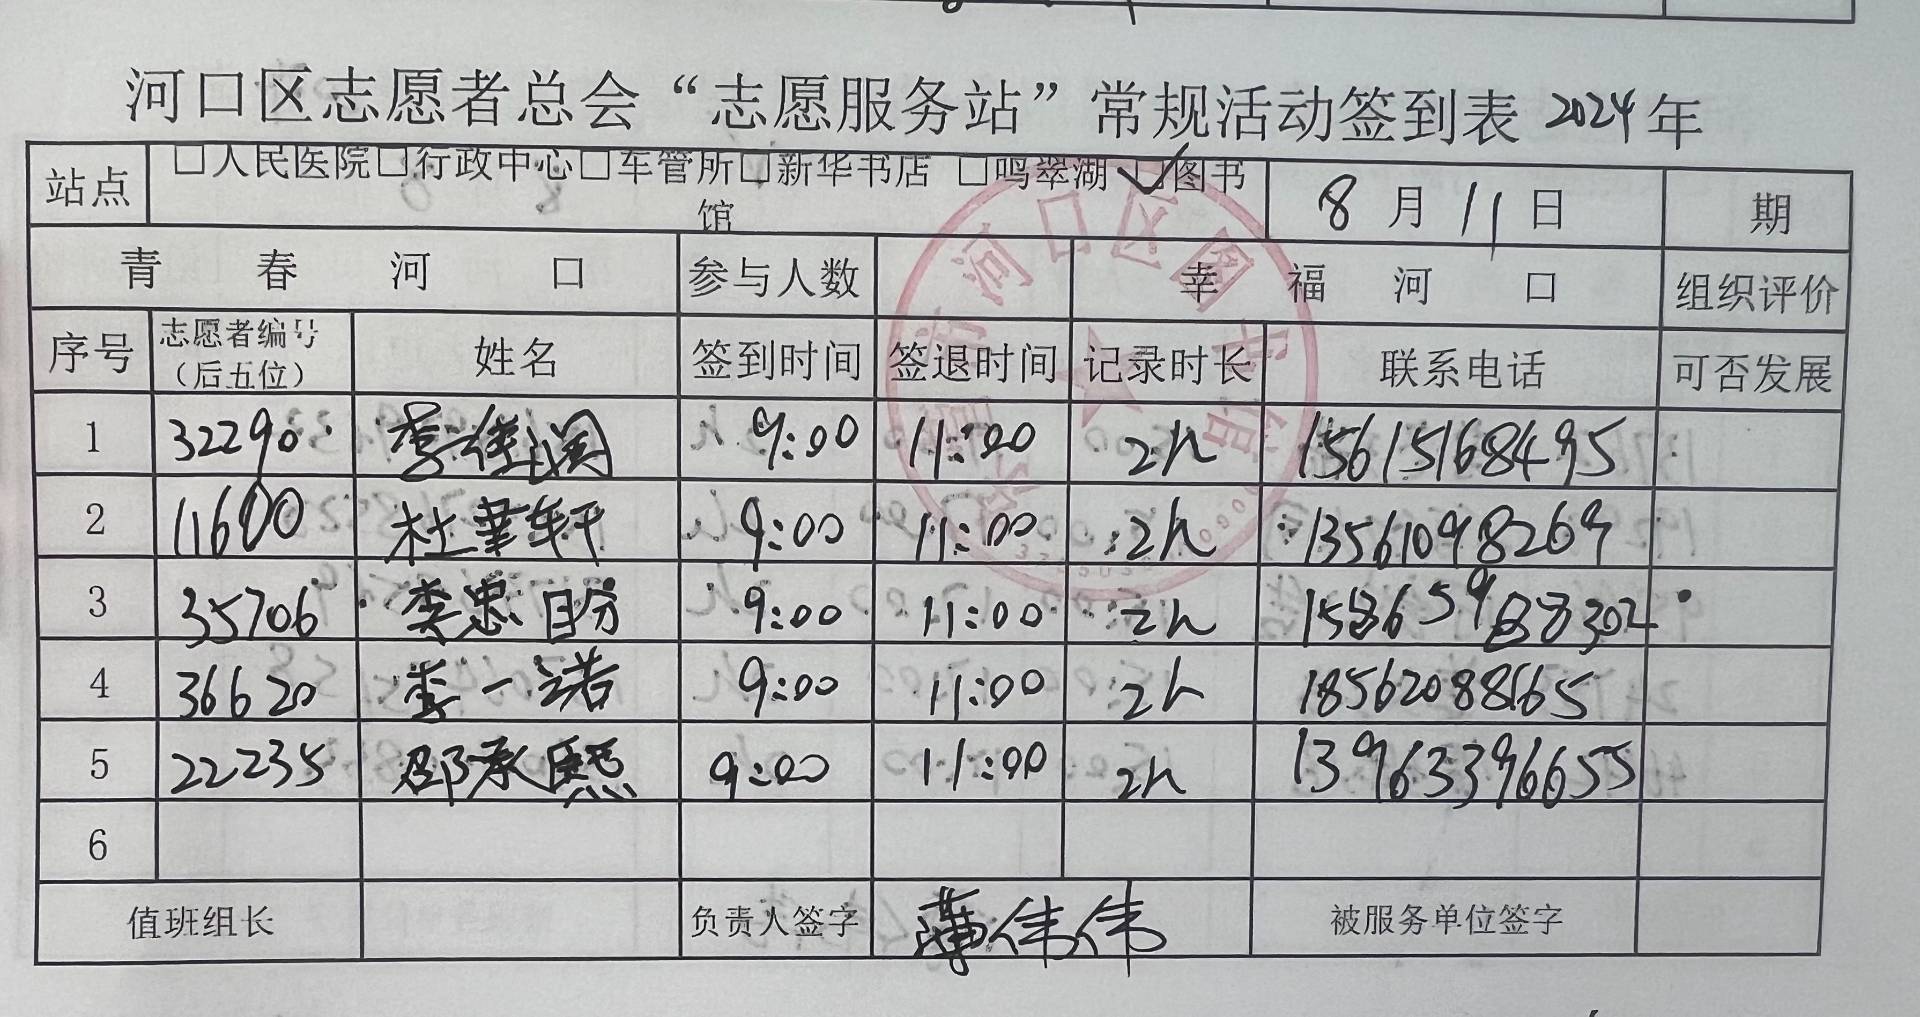 河口区志愿者总会“志愿服务站”常规活动签到表 2024年
站点 □人民医院□行政中心□车管所□新华书店 □鸣翠湖 ☑图书馆 8月11日 期
青春河口 参与人数 幸福河口 组织评价
序号 志愿者编号（后五位） 姓名 签到时间 签退时间 记录时长 联系电话 可否发展
1 32290 李佳润 9:00 11:00 2h 15615168495
2 11600 杜華轩 9:00 11:00 2h 13561098269
3 35706 9:00 11:00 2h
4 36620 李一诺 9:00 11:00 2h 18562088165
5 22235 邵承熙 9:00 11:00 2h 13963396655
6
值班组长 负责人签字 薄伟伟 被服务单位签字
河口区图书馆